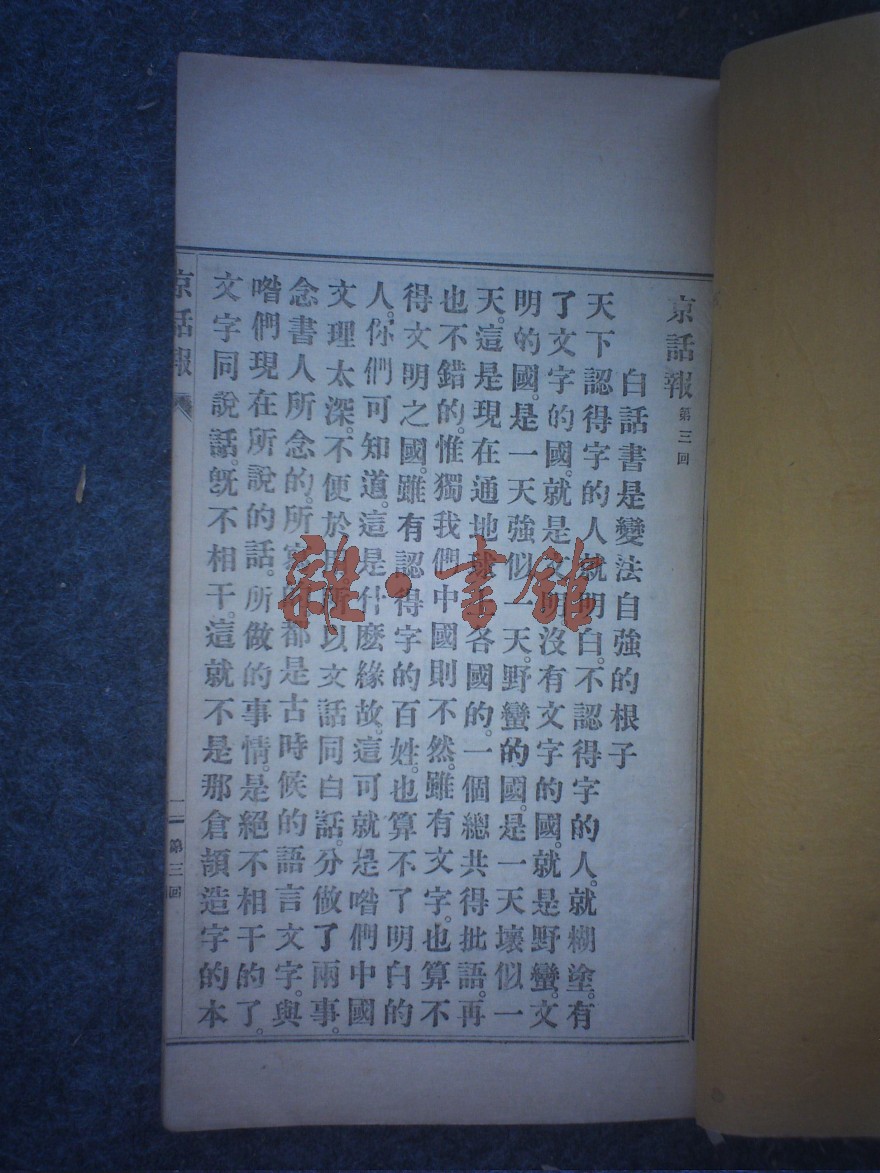 京話報 第三回
白話書是變法自強的根子
天下認得字的人就明白。不認得字的人。就糊塗。有
了文字的國。就是文明。沒有文字的國。就是野蠻。文
明的國。是一天強似一天。野蠻的國。是一天壞似一
天。這是現在通地球上各國的。一個總共得批語。再
也不錯的。惟獨我們中國則不然。雖有文字。也算不
得文明之國。雖有認得字的百姓。也算不了明白的
人。你們可知道。這是什麽緣故。這可就是喒們中國
文理太深。不便於用。所以文話同白話。分做了兩事。
念書人所念的。所寫的。都是古時候的語言文字。與
喒們現在所說的話。所做的事情。是絕不相干的了。
文字同說話。旣不相干。這就不是那倉頡造字的本
京話報
二 第三回
雜·書館